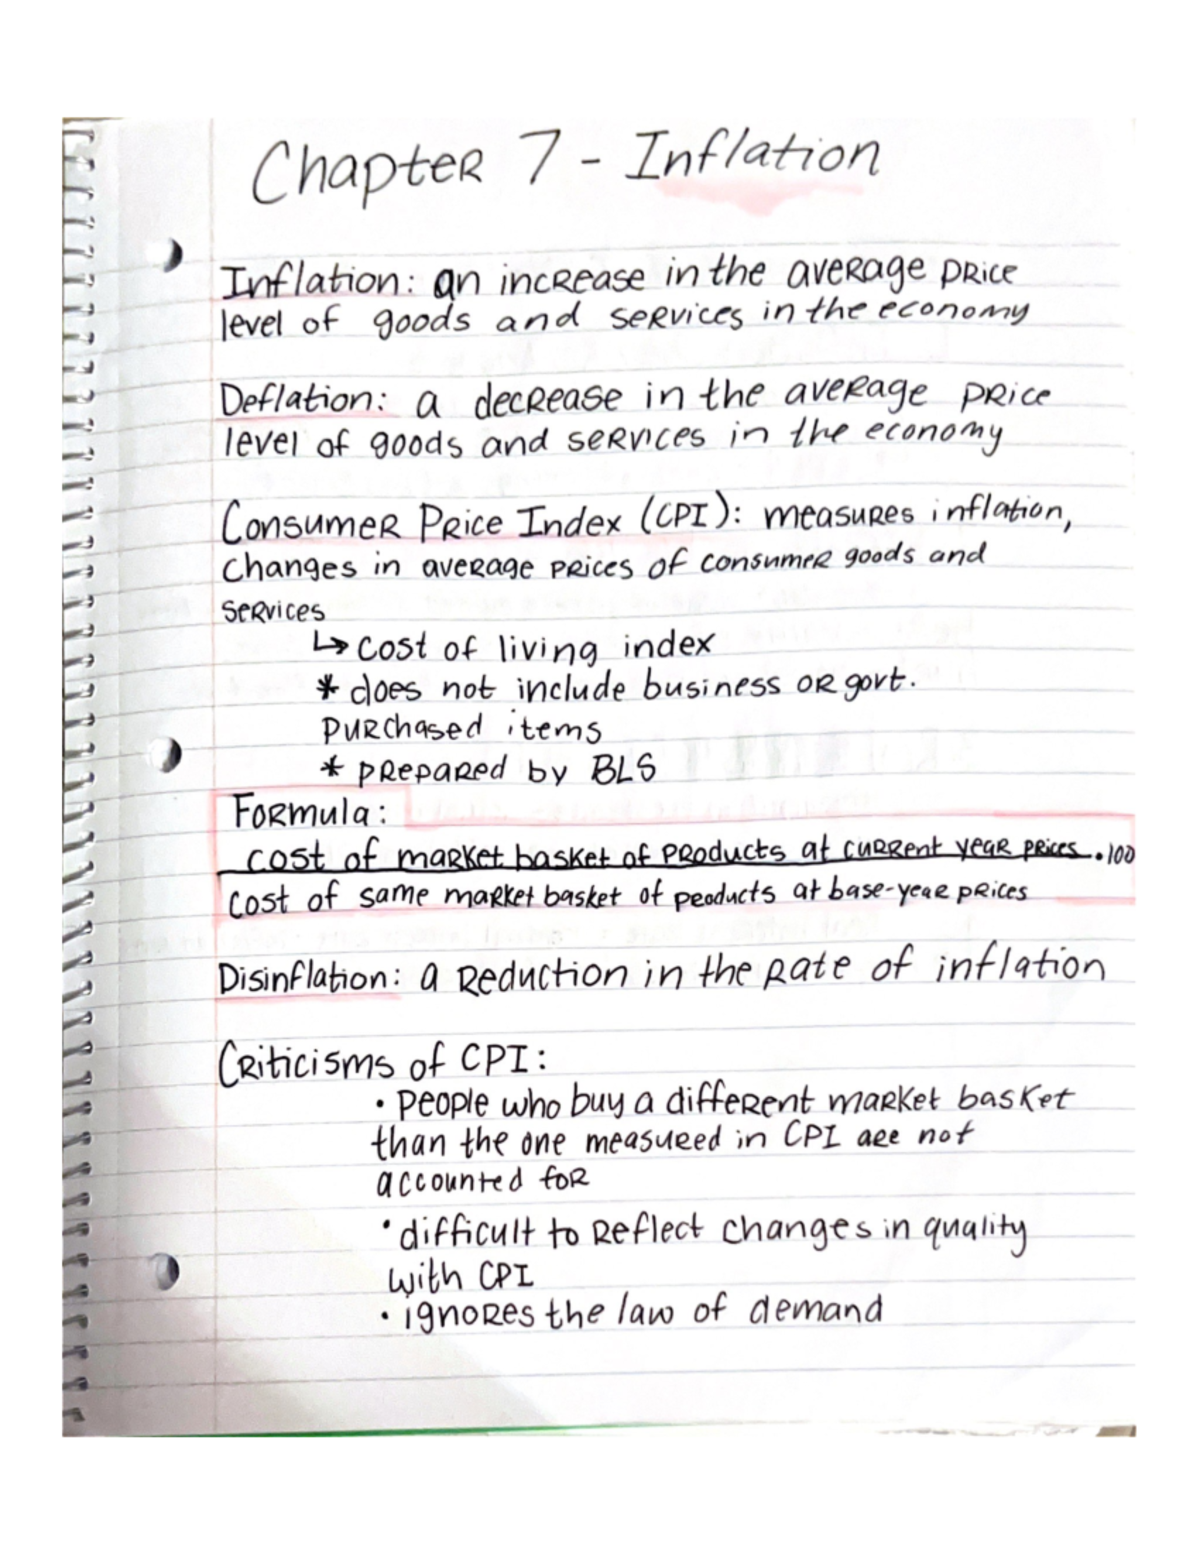 Chapter 7 - Inflation
Inflation: an increase in the average price
level of goods and services in the economy
Deflation: a decrease in the average price
level of goods and services in the economy
Consumer Price Index (CPI): measures inflation,
changes in average prices of consumer goods and
services
↳ cost of living index
* does not include business or govt.
purchased items
* prepared by BLS
Formula:
cost of market basket of products at current year prices • 100
cost of same market basket of peoducts at base-year prices
Disinflation: a reduction in the rate of inflation
Criticisms of CPI:
• people who buy a different market basket
than the one measured in CPI are not
accounted for
• difficult to reflect changes in quality
with CPI
• ignores the law of demand